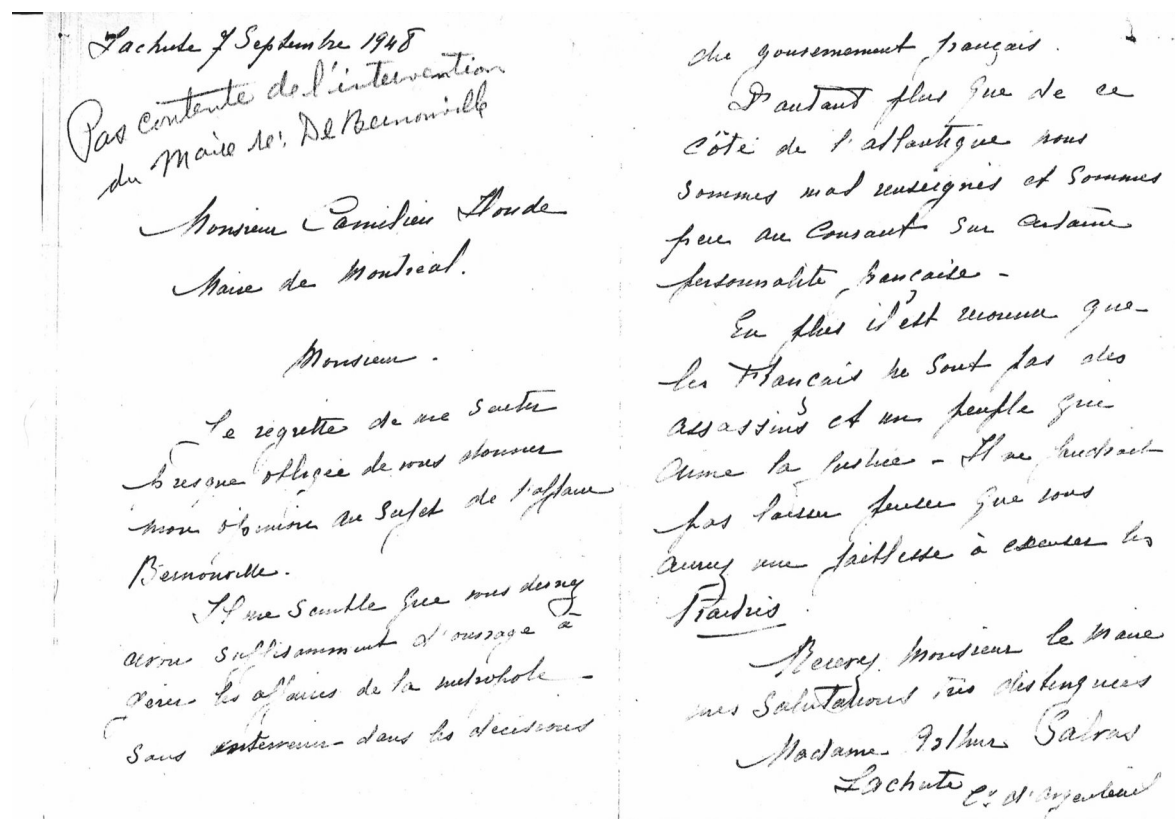 Lachute 7 Septembre 1948
Pas contente de l'intervention
du Maire re: De Bernonville
Monsieur Camilien Houde
Maire de Montreal.
Monsieur.
Je regrette de me sentir
presque obligée de vous donner
mon opinion au sujet de l'affaire
Bernonville.
Il me semble que vous devez
avoir suffisamment d'ouvrage à
gérer les affaires de la metropole
sans intervenir dans les décisions
du gouvernement français.
D'autant plus que de ce
côté de l'atlantique nous
sommes mal renseignés et sommes
peu au courant sur certaine
personnalité française -
En plus il est reconnu que
les Français ne sont pas des
assassins et un peuple qui
aime la justice - Il ne faudrait
pas laisser penser que vous
auriez une faiblesse à excuser les
Traitres
Recevez Monsieur le Maire
mes salutations très distinguées
Madame Arthur Galvas
Lachute Co d'Argenteuil